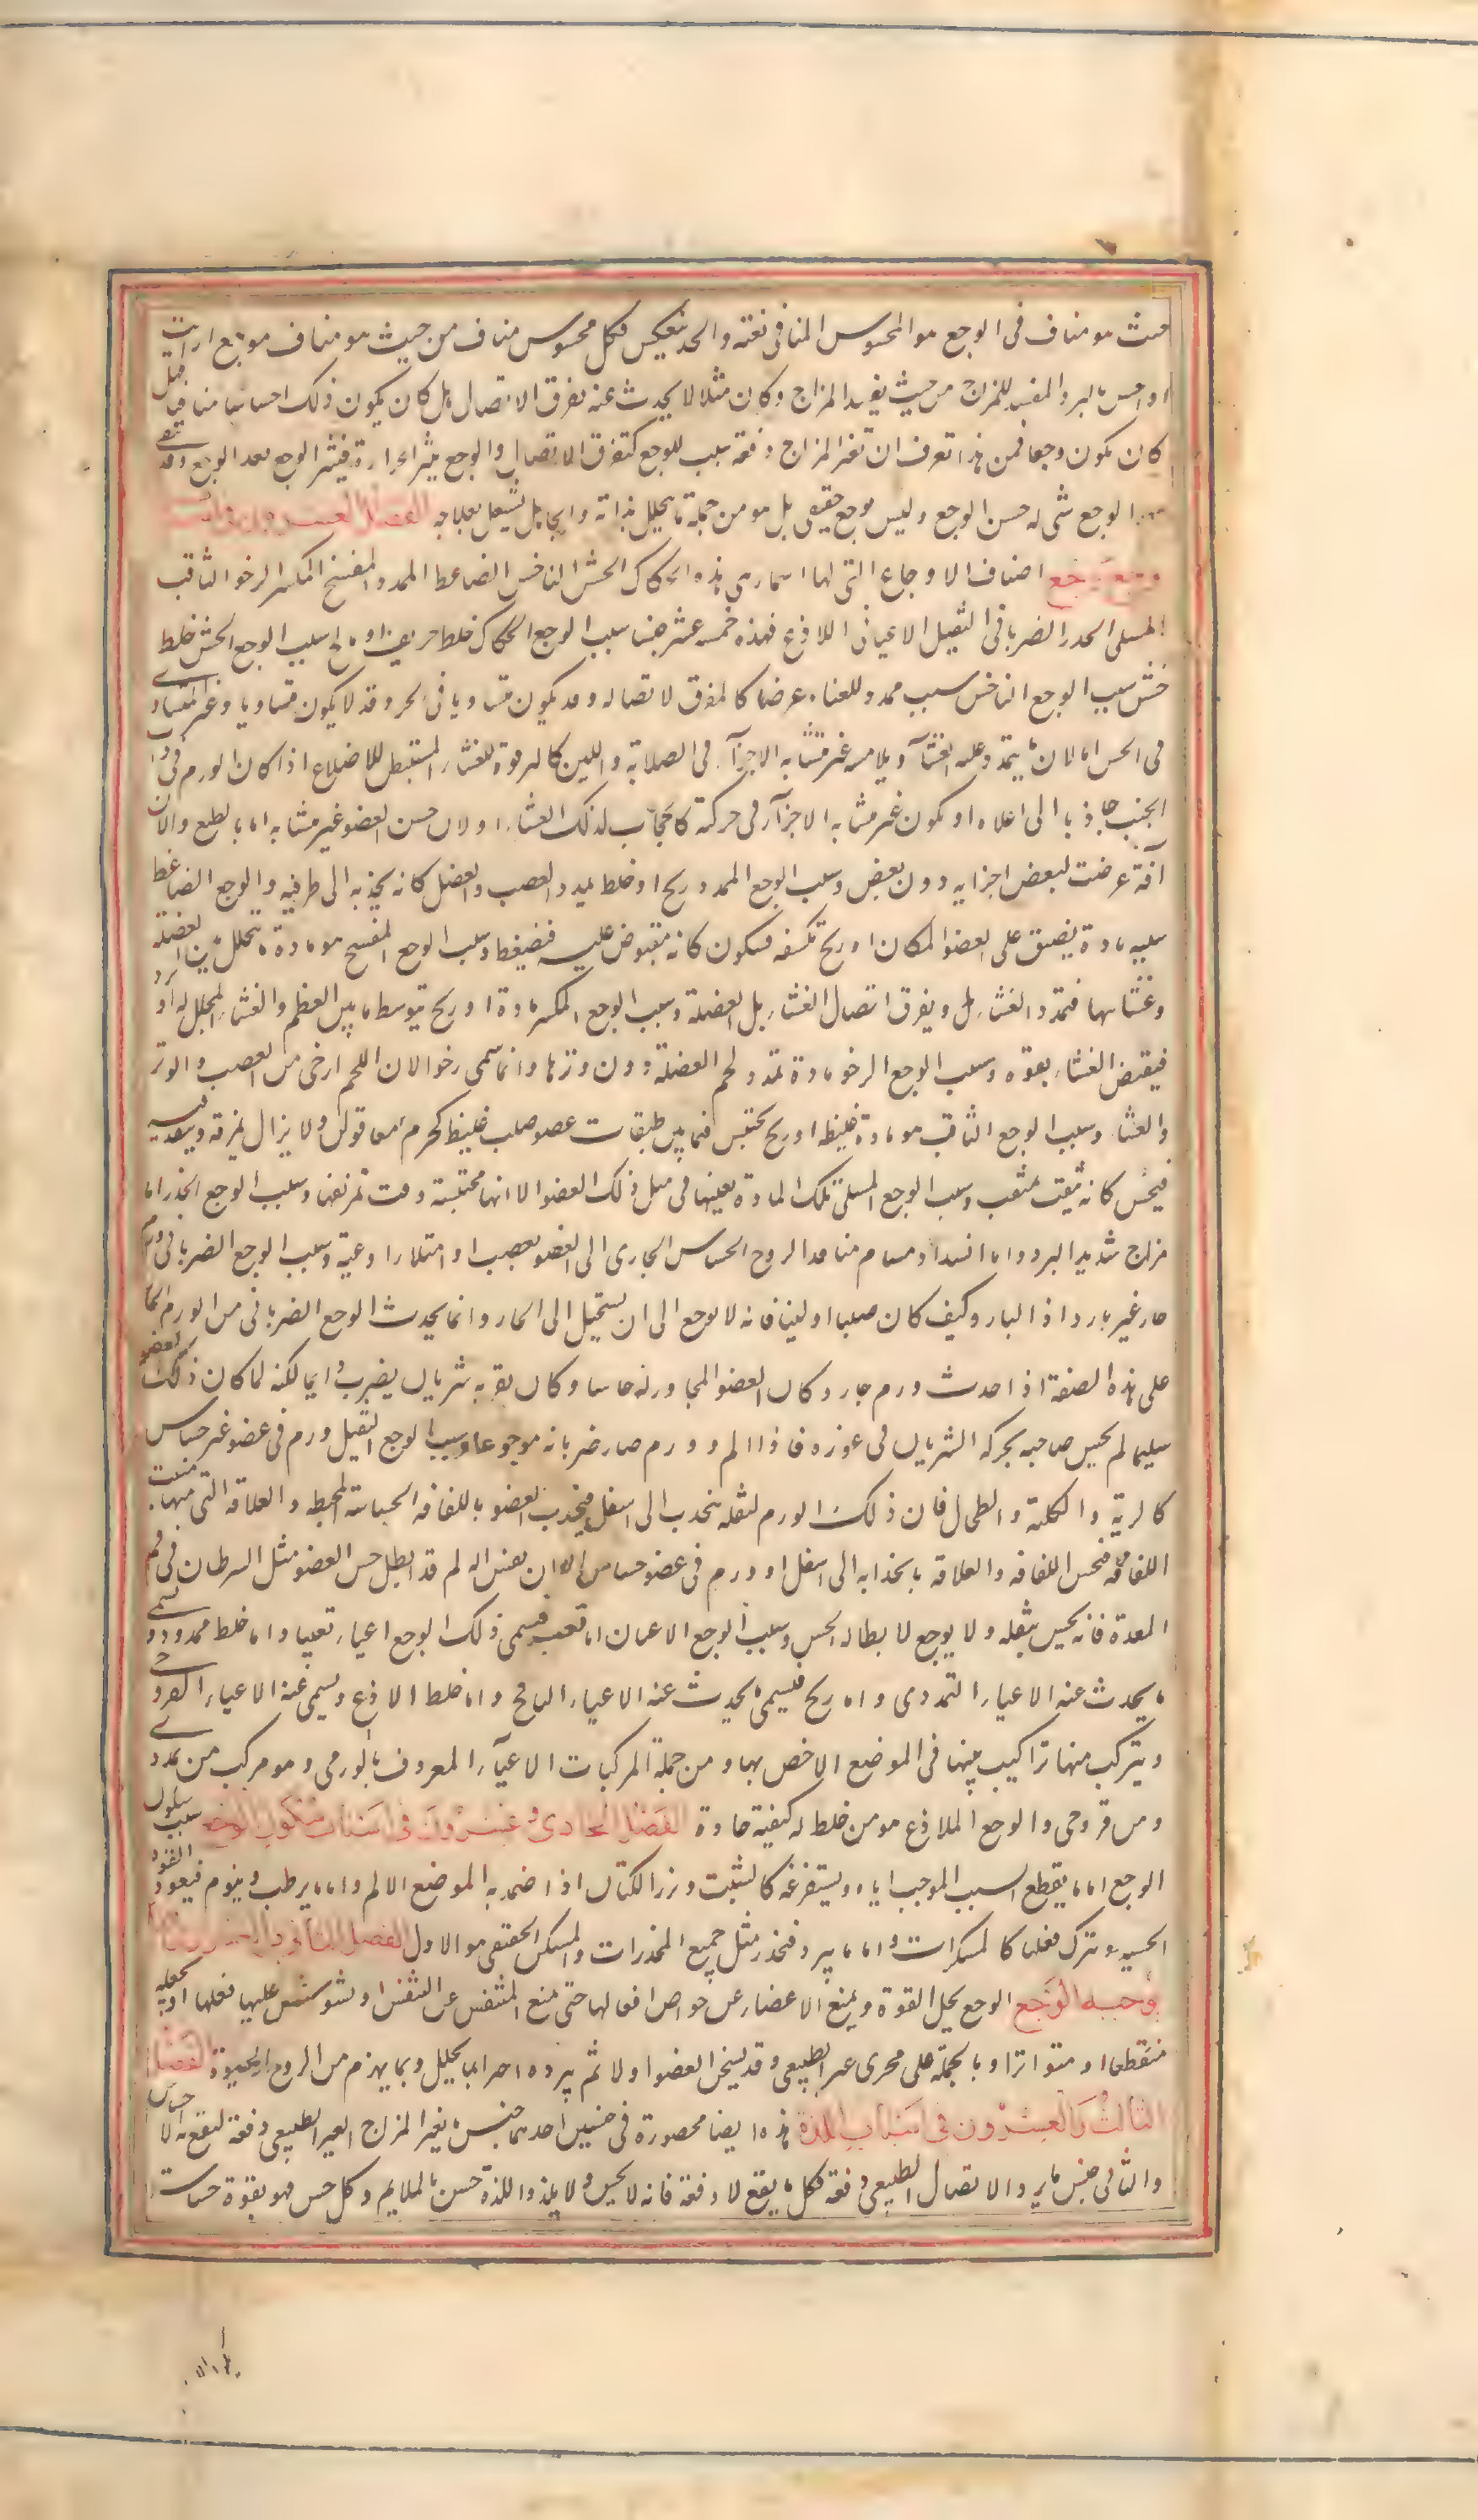 حيث هو مناف فى الوجع هو المحسوس المنافى بغتة والحد ينعكس فكل محسوس مناف من حيث هو مناف موجع ارايت
اذا احس بالبرد المفسد للمزاج من حيث يفسد المزاج وكان مثلا لا يحدث عنه تفرق الاتصال هل كان يكون ذلك احساسا بمناف فهل
كان يكون وجعا فمن هذا تعرف ان تغير المزاج دفعة سبب للوجع كتفرق الاتصال والوجع يثير الحرارة فيثير الوجع بعد الوجع وقد يبقى
بعد الوجع شى له حس الوجع وليس بوجع حقيقى بل هو من جملة ما يتحلل بذاته والجاهل يشتغل بعلاجه الفصل العشرون فى اسباب
وجع وجع اصناف الاوجاع التى لها اسماء هى هذه الحكاك الخشن الناخس الضاغط الممدد المفسخ المكسر الرخو الثاقب
المسلى الخدر الضربانى الثقيل الاعيائى اللاذع فهذه خمسة عشر جنسا سبب الوجع الحكاك خلط حريف او مالح سبب الوجع الخشن خلط
خشن سبب الوجع الناخس سبب ممدد للغشاء عرضا كالمفرق لاتصاله وقد يكون متساويا فى الحس وقد لا يكون متساويا وغير المتساوى
فى الحس اما لان ما يتمدد عليه الغشاء ويلامسه غير متشابه الاجزاء فى الصلابة واللين كالترقوة للغشاء المستبطن للاضلاع اذا كان الورم فى ذات
الجنب جاذبا الى اعلاه او يكون غير متشابه الاجزاء فى حركته كالحجاب لذلك الغشاء او لان حس العضو غير متشابه اما بالطبع واما لان
آفة عرضت لبعض اجزايه دون بعض وسبب الوجع الممدد ريح او خلط يمدد العصب والعضل كانه يجذبه الى طرفيه والوجع الضاغط
سببه مادة يضيق على العضو المكان او ريح تكتنفه فيكون كانه مقبوض عليه فيضغط وسبب الوجع المفسخ هو مادة ما يتحلل من العضلة
وغشائها فتمدد الغشاء بل ويفرق اتصال الغشاء بل العضلة وسبب الوجع المكسر مادة او ريح يتوسط ما بين العظم والغشاء المجلل له او برد
فيقبض الغشاء بقوة وسبب الوجع الرخو مادة تمدد لحم العضلة دون وترها وانما سمى رخوا لان اللحم ارخى من العصب والوتر
والغشاء وسبب الوجع الثاقب هو مادة غليظة او ريح تحتبس فيما بين طبقات عضو صلب غليظ كجرم معا قولن ولا يزال يمزقه وينفذ فيه
فيحس كانه يثقب بمثقب وسبب الوجع المسلى تلك المادة بعينها فى مثل ذلك العضو الا انها محتبسة وقت تمزيقها وسبب الوجع الخدر اما
مزاج شديد البرد واما انسداد مسام منافذ الروح الحساس الجارى الى العضو بعصب او امتلاء اوعية وسبب الوجع الضربانى ورم
حار غير بارد اذ البارد كيف كان صلبا او لينا فانه لا يوجع الى ان يستحيل الى الحار وانما يحدث الوجع الضربانى من الورم الحار
على هذه الصفة اذا حدث ورم حار وكان العضو المجاور له حاسا وكان بقربه شريان يضرب دايما لكنه لما كان ذلك العضو
سليما لم يحس صاحبه بحركة الشريان فى غوره فاذا الم وورم صار ضربانه موجعا وسبب الوجع الثقيل ورم فى عضو غير حساس
كالرية والكلية والطحال فان ذلك الورم لثقله ينجذب الى اسفل فيجذب العضو باللفافة الحساسة المحيطة والعلاقة التى منها منبت
اللفافة فتحس اللفافة والعلاقة بانجذابه الى اسفل او ورم فى عضو حساس الا ان نفس الالم قد ابطل حس العضو مثل السرطان فى فم
المعدة فانه يحس بثقله ولا يوجع لابطاله الحس وسبب الوجع الاعيائى اما تعب فيسمى ذلك الوجع اعياء تعبيا واما خلط ممدد ويسمى
ما يحدث عنه الاعياء التمددى واما ريح فيسمى ما يحدث عنه الاعياء النافخ واما خلط لاذع ويسمى عنه الاعياء القروحى
ويتركب منها تراكيب نبينها فى الموضع الاخص بها ومن جملة المركبات الاعياء المعروف بالورمى وهو مركب من تمددى
ومن قروحى والوجع اللاذع هو من خلط له كيفية حادة الفصل الحادى وعشرون فى اسباب سكون الوجع سبب سكون
الوجع اما ما يقطع السبب الموجب اياه ويستفرغه كالشبث وبزر الكتان اذا ضمد به الموضع الالم واما ما يرطب وينوم فيغور القوة
الحسية ويترك فعلها كالمسكرات واما ما يبرد فيخدر مثل جميع المخدرات والمسكن الحقيقى هو الاول الفصل الثانى والعشرون فيما
يوجبه الوجع الوجع يحل القوة ويمنع الاعضاء عن خواص افعالها حتى يمنع المتنفس عن التنفس او يشوش عليها فعلها او يجعله
منقطعا او متواترا وبالجملة على مجرى غير الطبيعى وقد يسخن العضو اولا ثم يبرده اخرا بما يحلل وبما يهزم من الروح والحيوة الفصل
الثالث والعشرون فى اسباب اللذة هذه ايضا محصورة فى جنسين احدهما جنس ما يغير المزاج الغير الطبيعى دفعة ليقع به الاحساس
والثانى جنس ما يرد الاتصال الطبيعى دفعة فكل ما يقع لا دفعة فانه لا يحس ولا يلذ واللذة حس بالملايم وكل حس فهو بقوة حساسة